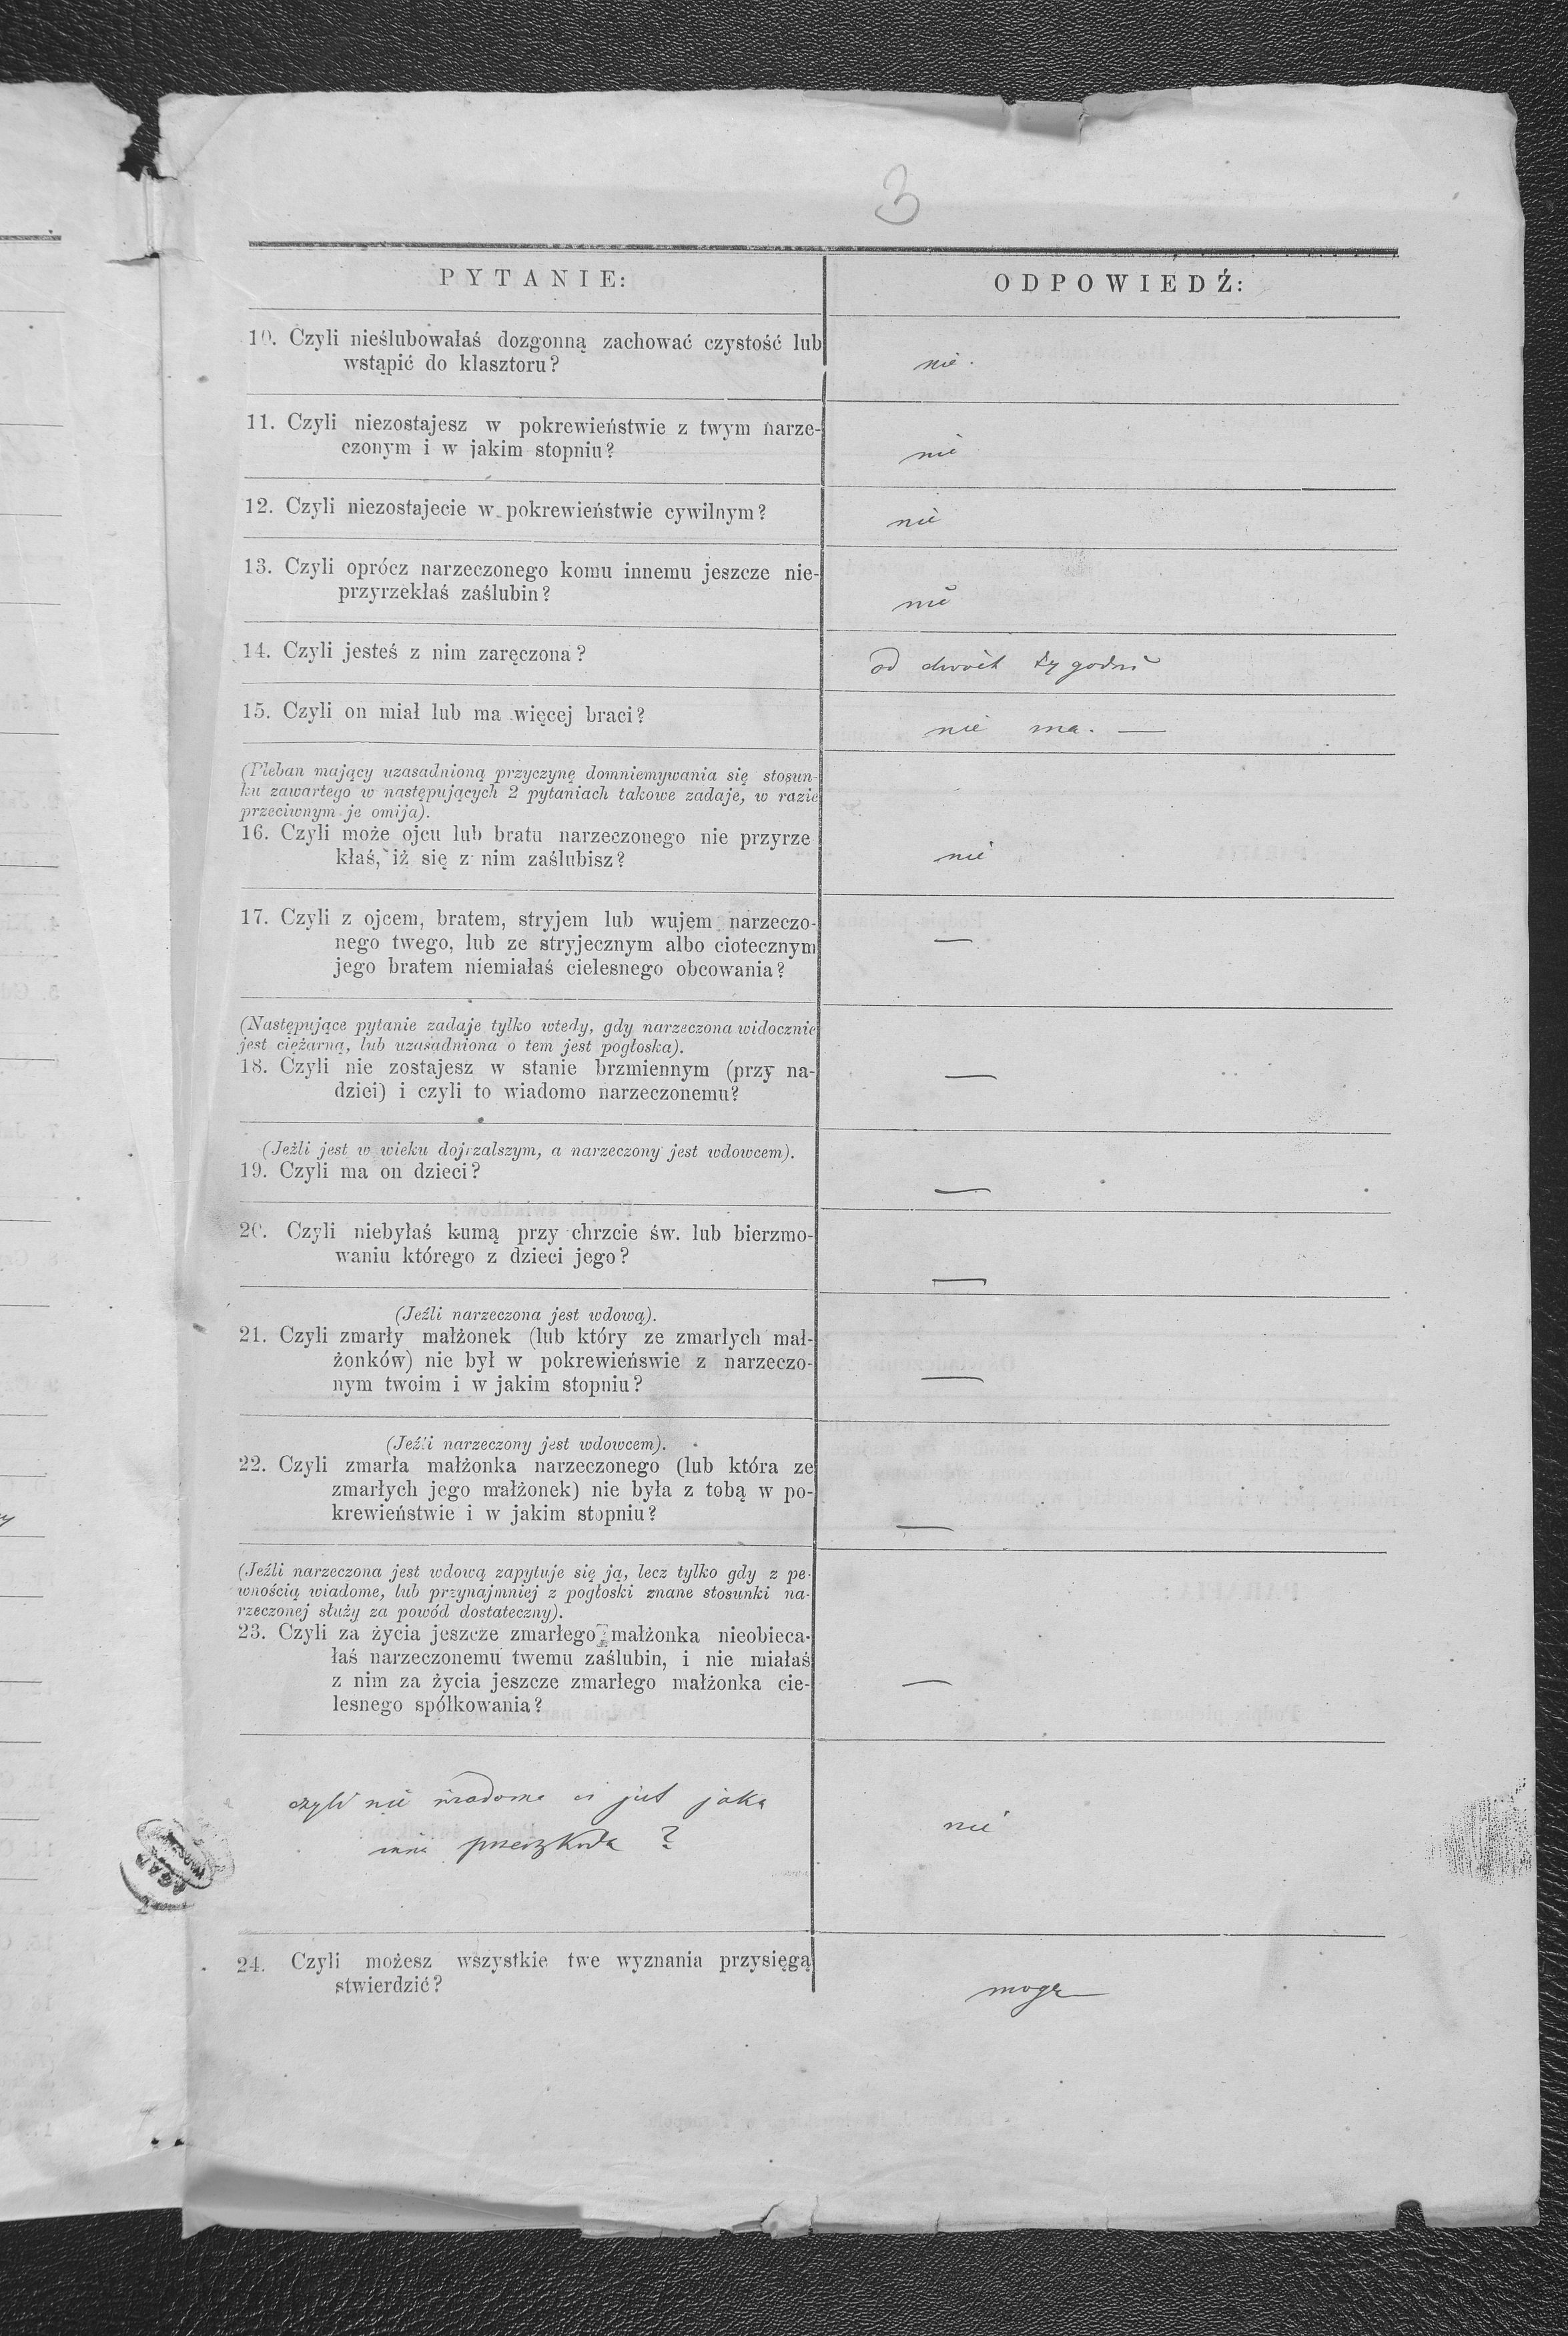 3
PYTANIE:
ODPOWIEDŹ:
10. Czyli nieślubowałaś dozgonną zachować czystość lub
wstąpić do klasztoru?
nie.
11. Czyli niezostajesz w pokrewieństwie z twym narze-
czonym i w jakim stopniu?
nie
12. Czyli niezostajecie w pokrewieństwie cywilnym?
nie
13. Czyli oprócz narzeczonego komu innemu jeszcze nie-
przyrzekłaś zaślubin?
nie
14. Czyli jesteś z nim zaręczona?
od dwóch tygodni
15. Czyli on miał lub ma więcej braci?
nie ma. —
(Pleban mający uzasadnioną przyczynę domniemywania się stosun-
ku zawartego w następujących 2 pytaniach takowe zadaje, w razie
przeciwnym je omija).
16. Czyli może ojcu lub bratu narzeczonego nie przyrze
kłaś, iż się z nim zaślubisz?
nie
17. Czyli z ojcem, bratem, stryjem lub wujem narzeczo-
nego twego, lub ze stryjecznym albo ciotecznym
jego bratem niemiałaś cielesnego obcowania?
—
(Następujące pytanie zadaje tylko wtedy, gdy narzeczona widocznie
jest ciężarną, lub uzasadniona o tem jest pogłoska).
18. Czyli nie zostajesz w stanie brzmiennym (przy na-
dziei) i czyli to wiadomo narzeczonemu?
—
(Jeżli jest w wieku dojrzalszym, a narzeczony jest wdowcem).
19. Czyli ma on dzieci?
—
20. Czyli niebyłaś kumą przy chrzcie św. lub bierzmo-
waniu którego z dzieci jego?
—
(Jeźli narzeczona jest wdową).
21. Czyli zmarły małżonek (lub który ze zmarłych mał-
żonków) nie był w pokrewieńswie z narzeczo-
nym twoim i w jakim stopniu?
—
(Jeźli narzeczony jest wdowcem).
22. Czyli zmarła małżonka narzeczonego (lub która ze
zmarłych jego małżonek) nie była z tobą w po-
krewieństwie i w jakim stopniu?
—
(Jeźli narzeczona jest wdową zapytuje się ją, lecz tylko gdy z pe-
wnością wiadome, lub przynajmniej z pogłoski znane stosunki na-
rzeczonej służy za powód dostateczny).
23. Czyli za życia jeszcze zmarłego małżonka nieobieca-
łaś narzeczonemu twemu zaślubin, i nie miałaś
z nim za życia jeszcze zmarłego małżonka cie-
lesnego spółkowania?
—
czyli nie wiadoma ci jest jaka
inna przeszkoda ?
nie
24. Czyli możesz wszystkie twe wyznania przysięgą
stwierdzić?
mogę